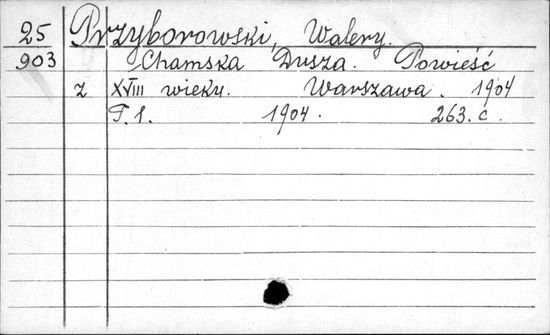 25 Przyborowski, Walery.
903 Chamska Dusza. Powieść
z XVIII wieku. Warszawa. 1904
T. 1. 1904. 263. c.